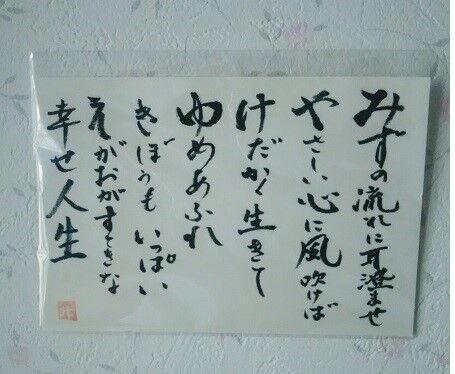 みずの流れに耳澄ませ
やさしい心に風吹けば
けだかく生きて
ゆめあふれ
きぼうもいっぱい
えがおがすてきな
幸せ人生